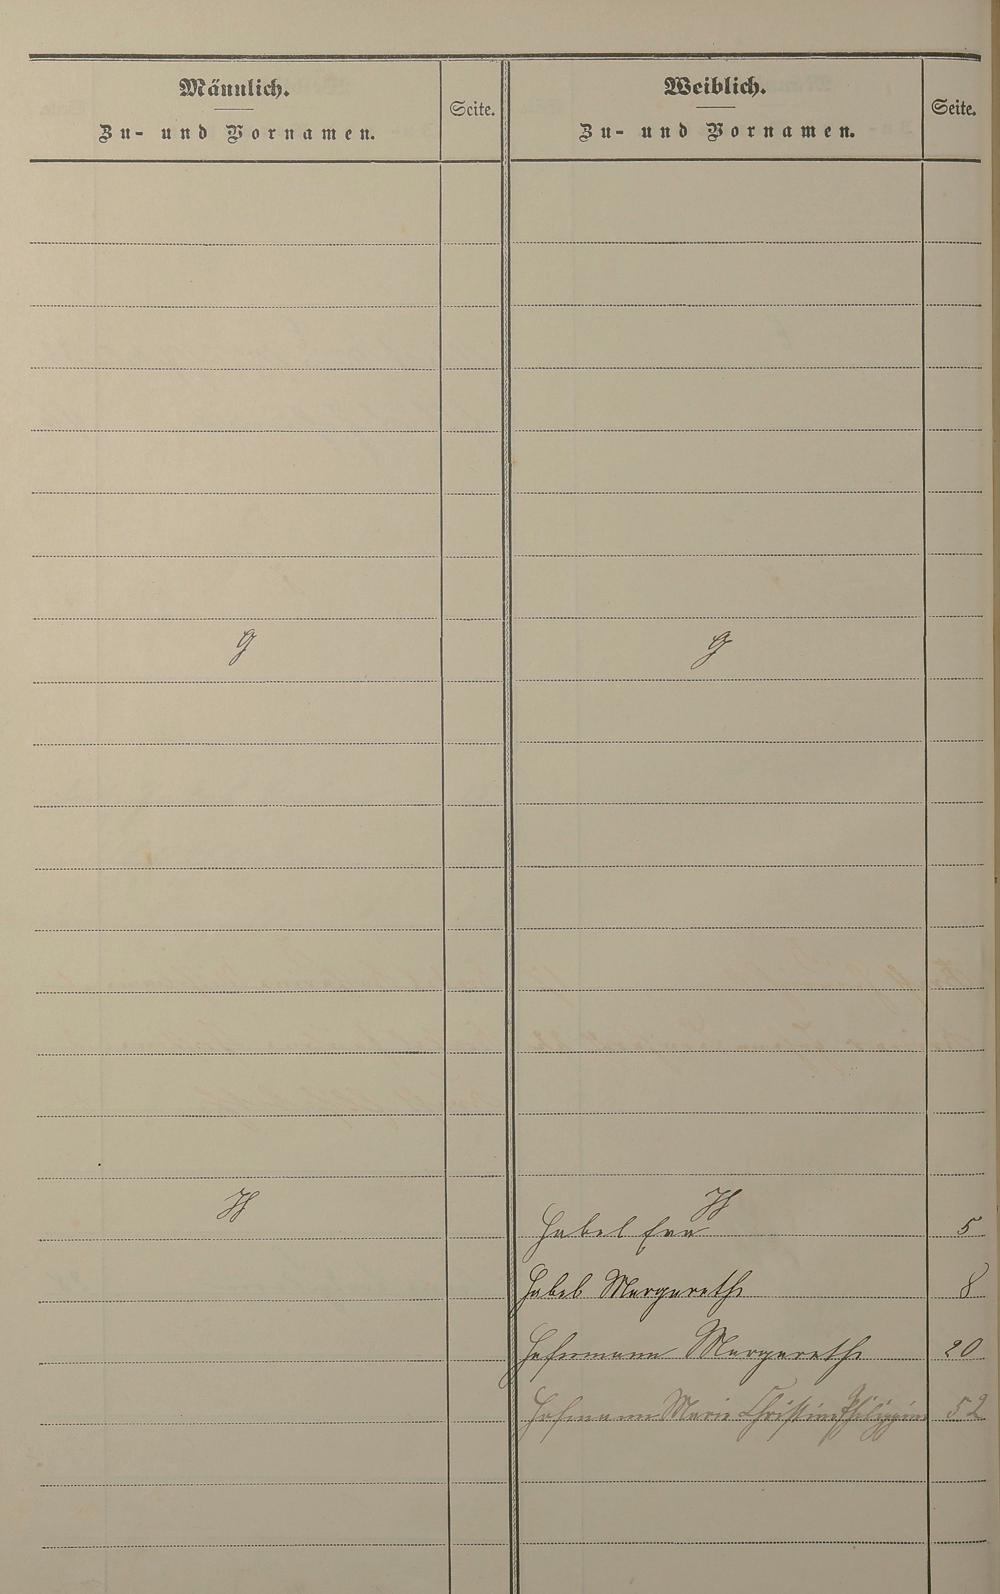 Männlich.
Zu- und Vornamen.
Seite.
Weiblich.
Zu- und Vornamen.
Seite.
G
G
H
H
Habel Eva 5
Habel Margarethe 8
Hofmann Margarethe 20
Hofmann Marie Christine Philippine 52